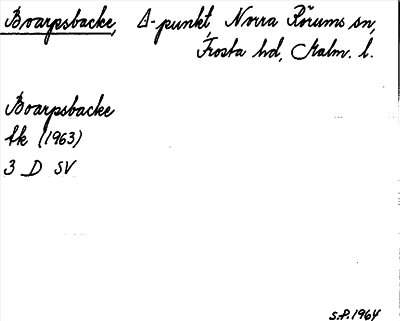 Boarpsbacke, Δ-punkt, Norra Rörums sn,
Frosta hd, Malm. l.
Boarpsbacke
tk (1963)
3 D SV
S.P. 1964